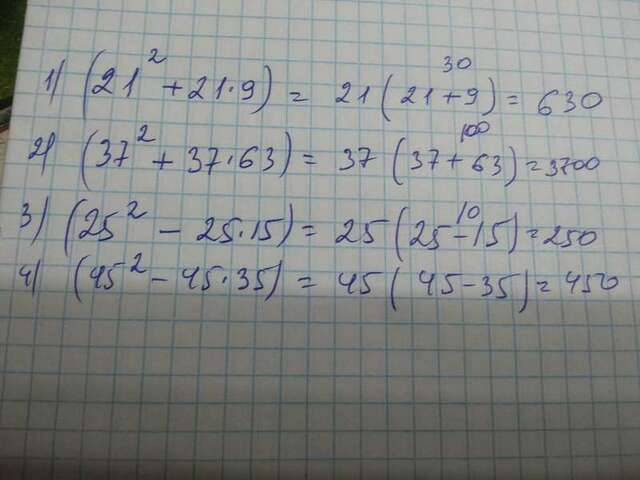 1) (21² + 21·9) = 21(21+9) = 630
30
2) (37² + 37·63) = 37(37+63) = 3700
100
3) (25² - 25·15) = 25(25-15) = 250
10
4) (45² - 45·35) = 45(45-35) = 450